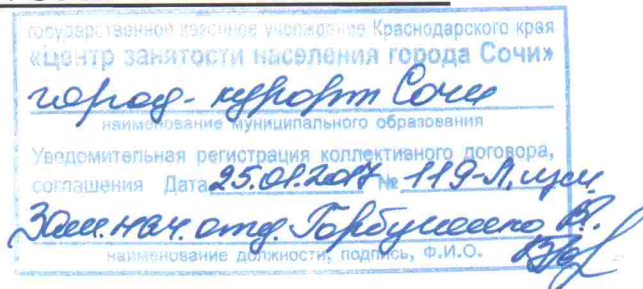 государственное казенное учреждение Краснодарского края
«Центр занятости населения города Сочи»
город-курорт Сочи
наименование муниципального образования
Уведомительная регистрация коллективного договора,
соглашения Дата 25.01.2017 № 119-Л,
Зам. нач. отд.
наименование должности, подпись, Ф.И.О.